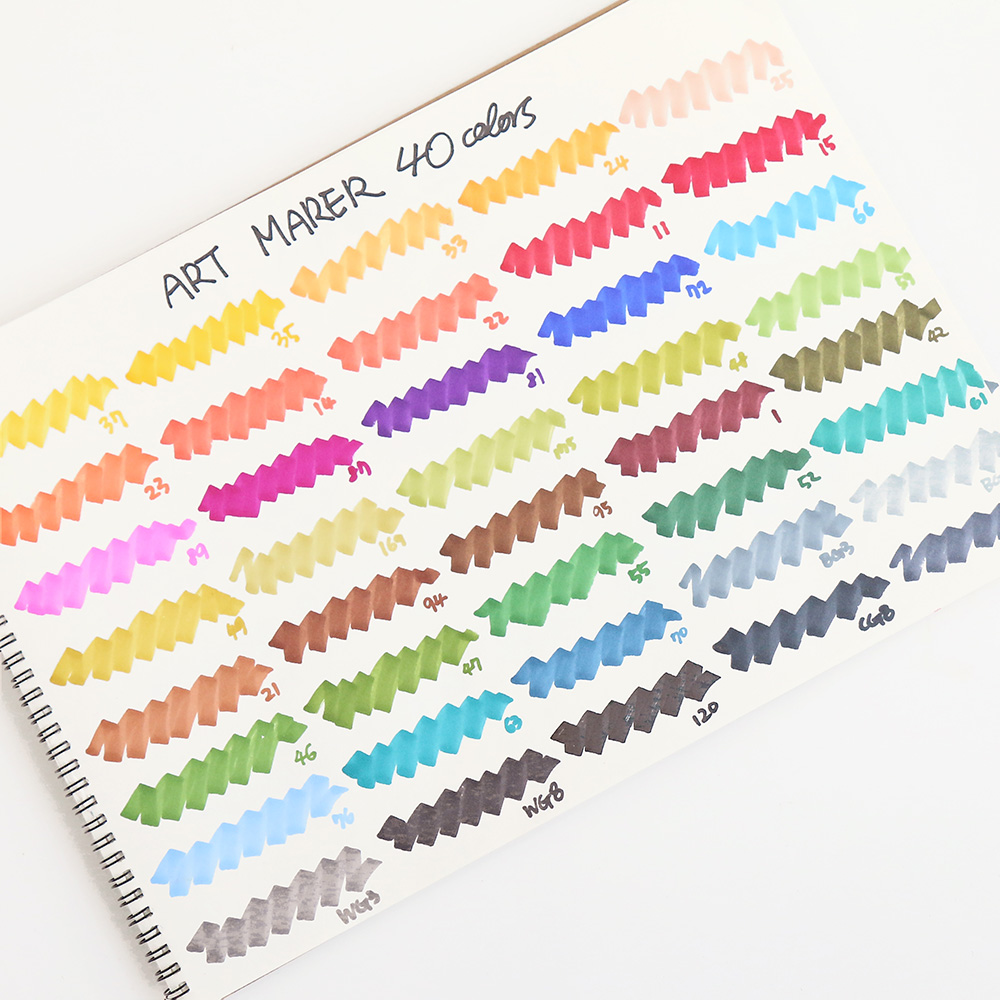 ART MARER 40 colors
37 35 33 24 25
23 14 22 11 15
89 87 81 72 66
49 169 175 48 59
21 94 95 1 42
46 47 55 52 61
76 63 70 BG3
WG3 WG8 120 CG8